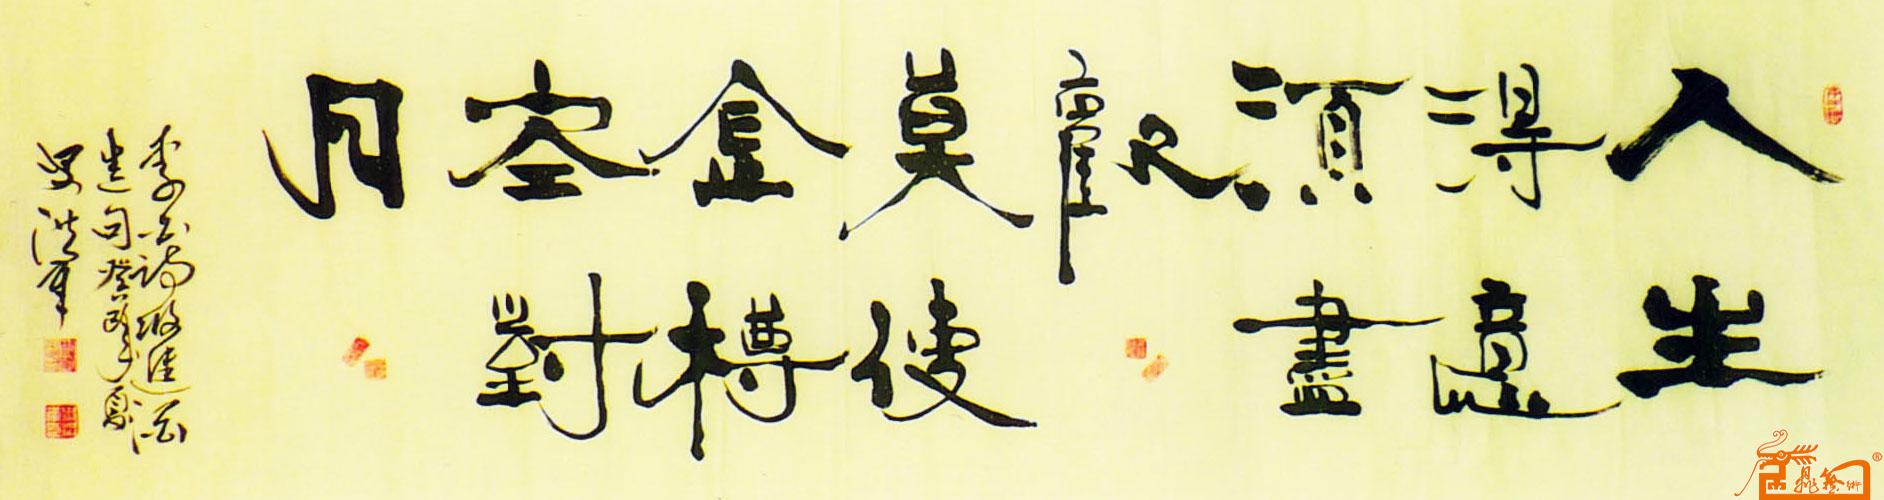 人生
得意
須盡
歡
莫使
金樽
空對
月
李白詩將進酒
句癸
洪